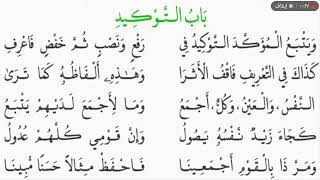 بَابُ التَّوْكِيدِ
وَيَتْبَعُ الْمُؤَكَّدَ التَّوْكِيدُ فِي رَفْعٍ وَنَصْبٍ ثُمَّ خَفْضٍ فَاعْرِفِ
كَذَاكَ فِي التَّعْرِيفِ فَاقْفُ الْأَثَرَا وَهَذِهِ أَلْفَاظُهُ كَمَا تَرَى
النَّفْسُ، وَالْعَيْنُ، وَكُلٌّ، أَجْمَعُ وَمَا لِأَجْمَعَ لَدَيْهِمْ يَتْبَعُ
كَجَاءَ زَيْدٌ نَفْسُهُ يَصُولُ وَإِنَّ قَوْمِي كُلَّهُمْ عُدُولُ
وَمَرَّ ذَا بِالْقَوْمِ أَجْمَعِينَا فَاحْفَظْ مِثَالًا حَسَنًا مُبِينَا